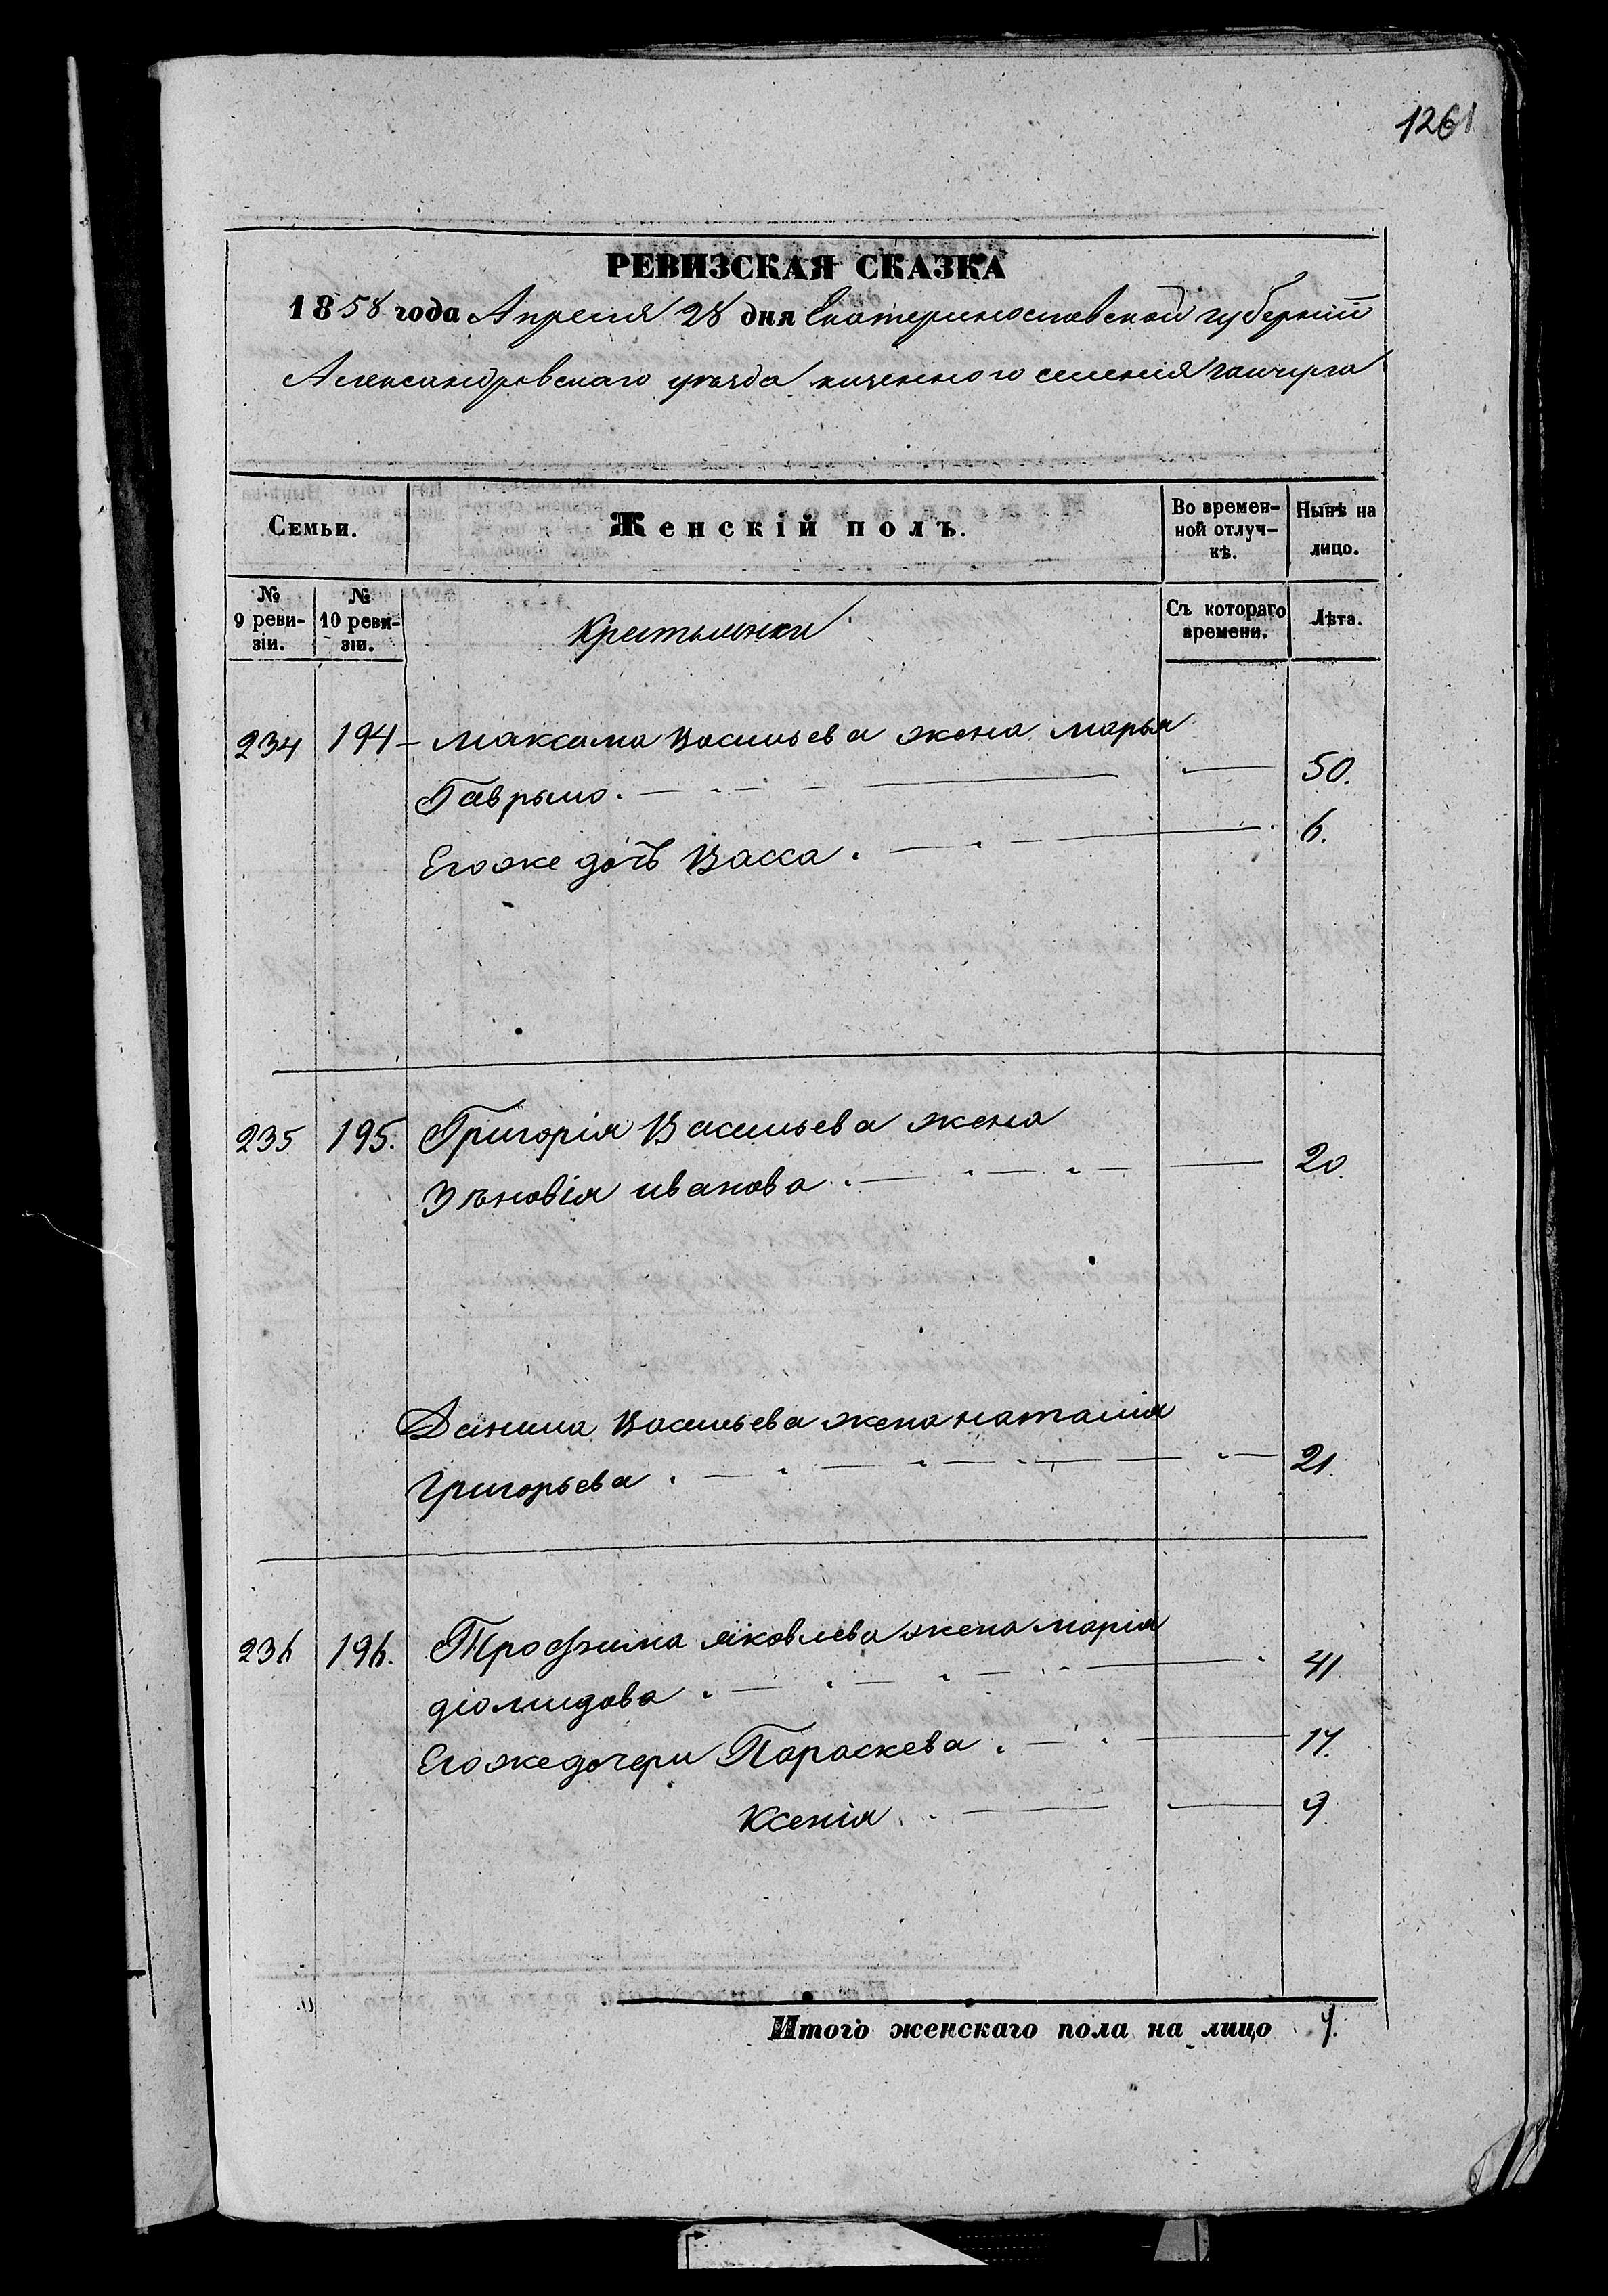 1261
РЕВИЗСКАЯ СКАЗКА
1858 года Апреля 28 дня Екатеринославской губернии
Александровскаго уезда казенного селения гайчула
Семьи.
Женскій полъ.
Во времен-
ной отлуч-
кѣ.
Нынѣ на
лицо.
№
9 реви-
зіи.
№
10 реви-
зіи.
Крестьянки
Съ котораго
времени.
Лѣта.
234 194 Максима Васильева жена марья
Гаврыло. 50.
Егоже дочь Васса. 6.
235 195. Григорія Васильева жена
Зѣновія иванова. 20.
Данила Васильева жена наталія
Григорьева. 21.
236 196. Трофима яковлева жена марія
діомидова. 41.
Егоже дочери Параскева. 17.
Ксенія 9.
Итого женскаго пола на лицо 7.